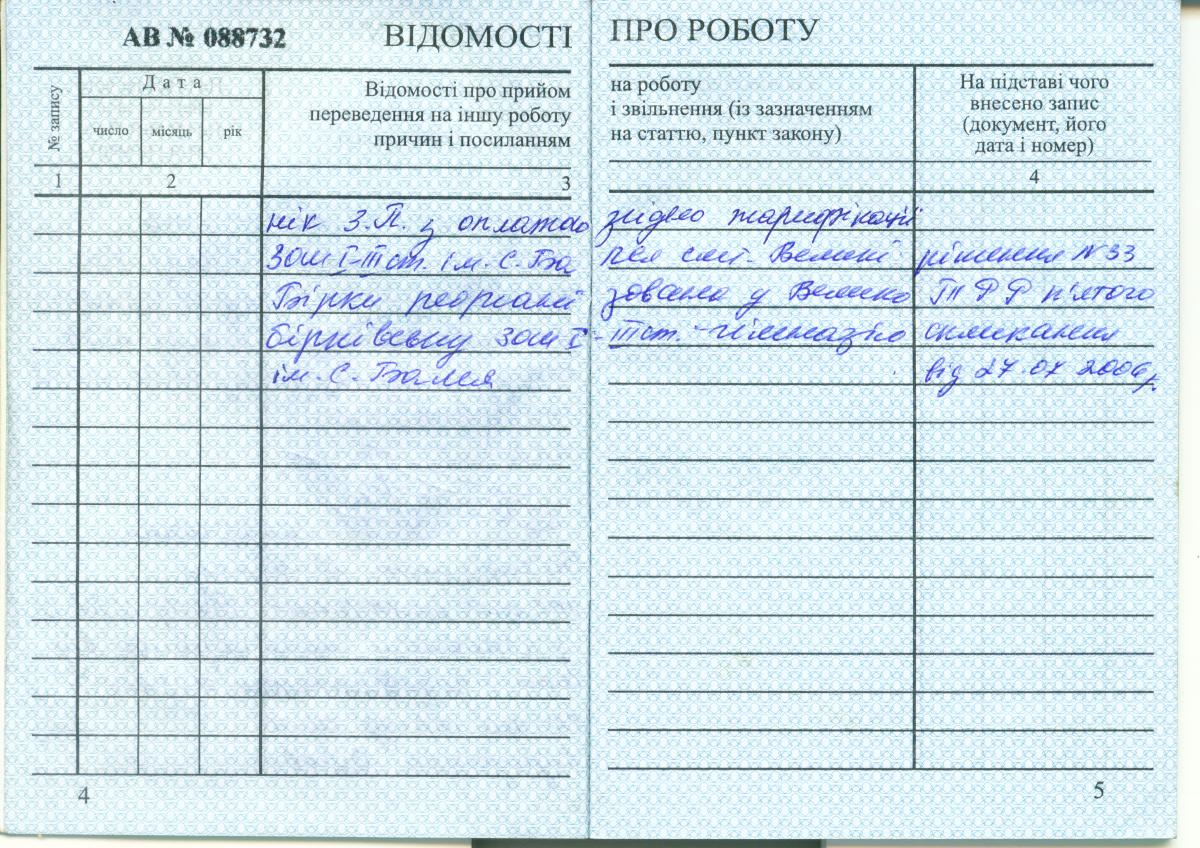 АВ № 088732 ВІДОМОСТІ ПРО РОБОТУ
№ запису
Дата
число місяць рік
Відомості про прийом
переведення на іншу роботу
причин і посиланням
на роботу
і звільнення (із зазначенням
на статтю, пункт закону)
На підставі чого
внесено запис
(документ, його
дата і номер)
1 2 3 4
нік З.П. з оплатою згідно тарифікації
ЗОШ І-ІІІ ст. ім. С. Ба лея смт. Великі рішення №33
Бірки реоргані зована у Велико ТРР п'ятого
бірківську ЗОШ І-ІІІ ст. - гімназію скликання
ім. С. Балея від 27.07.2006р.
4 5